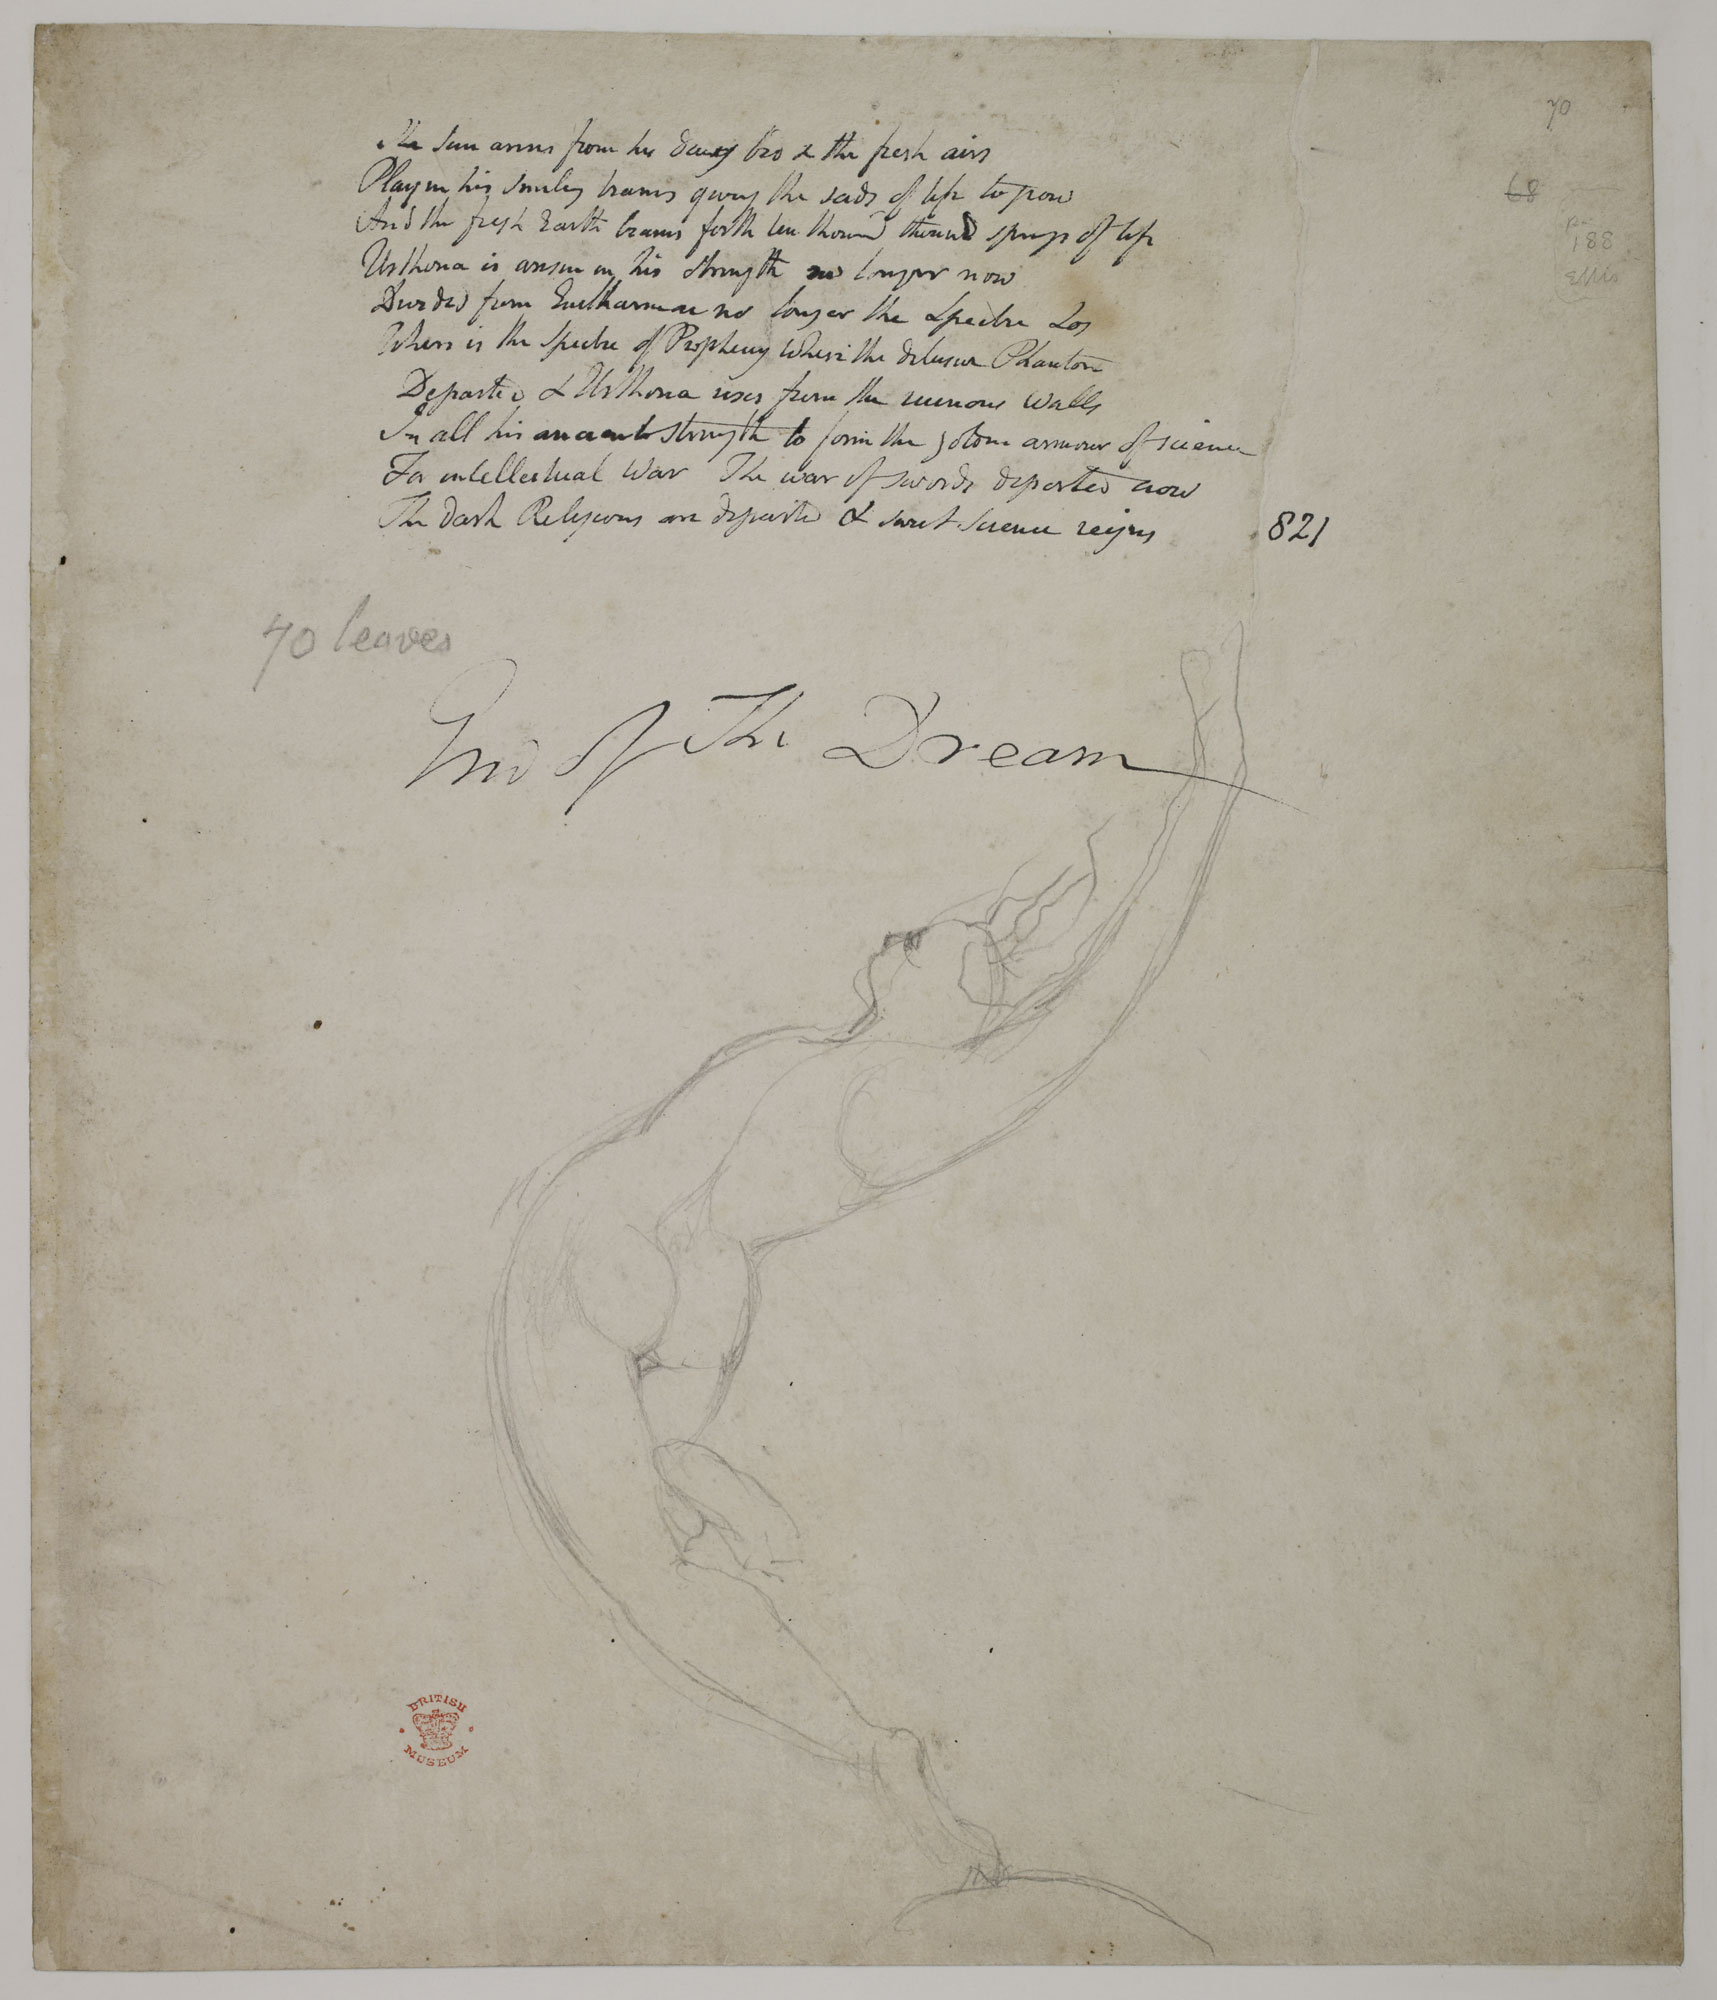 70
The Sun arises from his dewy bed & the fresh airs
Play in his smiling beams giving the seeds of life to grow
68
And the fresh Earth beams forth ten thousand thousand springs of life
188
Urthona is arisen in his strength no longer now
Ellis
Divided from Enitharmon no longer the Spectre Los
Where is the Spectre of Prophecy where the delusive Phantom
Departed & Urthona rises from the ruinous walls
In all his ancient strength to form the golden armour of science
For intellectual War The war of swords departed now
The dark Religions are departed & sweet Science reigns 821
70 leaves
End of The Dream
BRITISH
MUSEUM